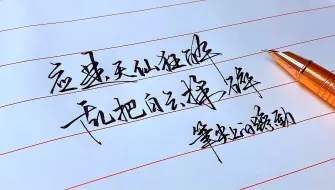 应是天仙狂醉
乱把白云揉碎
笔尖上的舞动